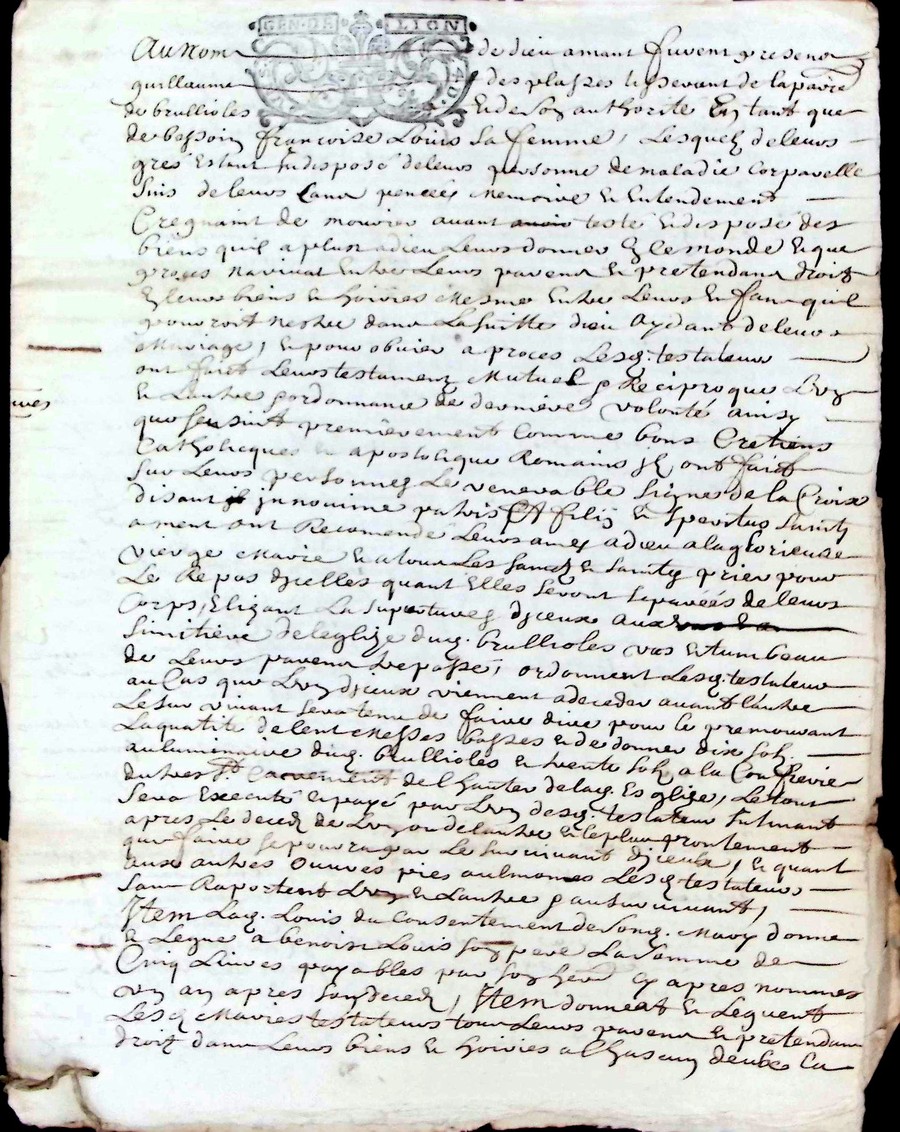 GEN·DE LION
Au Nom de dieu amant furent presens
guillaume des plasses tisserant de la paroisse
de brullioles & de son authorite En tant que
de bessoin francoise Louis sa femme, Lesquelz de leurs
gres Estant Indisposé de leurs personne de maladie corporelle
sains de leurs sans pencées memoire & Entendement
Cregnant de mourir avant avoir testé & disposé des
biens quil a pleu a dieu Leurs donner En ce monde & que
proces navint Entre Leurs parens & pretendans droit
En leurs biens & hoiries mesme Entre Leurs Enfans quil
pourroit Nestre dans La suitte dieu aydant de leurs
mariage, & pour obvier a proces Lesd. testateurs
ont faict Leurs testament Mutuel & Reciproque L'un
& Lautre & ordonnance de derniere volonté ainsy
que sensuit premierement comme bons Cretiens
Catholicques & apostolique Romains ilz ont faict
sur Leurs personnes Le venerable signe de la Croix
disant in nomine patris Et filij & speritus sancti
ament ont Recomendé Leurs ames a dieu a la glorieuse
vierge Marie & a tous Les saincts & sainctes prier pour
Le Repos d'icelles quant Elles seront separéés de leurs
Corps, Elizant La supulture d'iceux aux
simitiere de leglize dud. brullioles vas & tumbeau
de Leurs parens trepassé, ordonnent Lesd. testateurs
au Cas que L'un d'iceux viennent a deceder avant lautre
Le survivant sera tenu de faire dire pour le premourant
La quatité de cent Messes basses & de donner dix solz
au luminaire dud. brullioles & trente solz a la Confrerie
du tres St Sacrement de l'hauter de lad. Esglize, Le tout
sera Executé & payé par L'un desd. testateur survivant
apres Le deced de L'un ou de lautre & le plus prontement
que faire se pourra par Le survivant d'iceux, & quant
aux autres œuvres pies aulmones Lesd. testateurs
sans Raportent L'un & Lautre & au survivant,
Item Lad. Louis du Consentement de sond. Mary donne
& Legue a benoist Louis son pere La somme de
Cinq Livres payables par son herd. Cy apres nommes
un an apres son deced, Item donnent & Leguent
Lesd. Maries testateurs tous Leurs parens & pretendans
droit dans Leurs biens & hoiries a Chascun deulx La